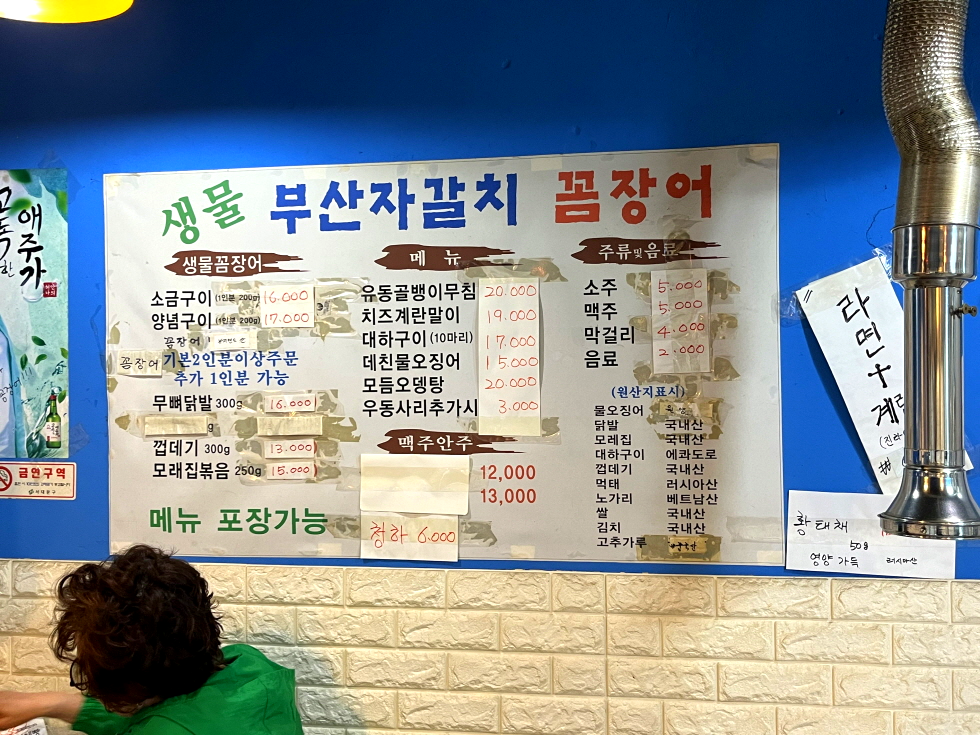 생물 부산자갈치 꼼장어
생물꼼장어
소금구이 (1인분 200g) 16.000
양념구이 (1인분 200g) 17.000
꼼장어
꼼장어 기본2인분이상주문
추가 1인분 가능
무뼈닭발 300g 16.000
g
껍데기 300g 13.000
모래집볶음 250g 15.000
메뉴 포장가능
메 뉴
유동골뱅이무침 20.000
치즈계란말이 19.000
대하구이 (10마리) 17.000
데친물오징어 15.000
모듬오뎅탕 20.000
우동사리추가시 3.000
맥주안주
12,000
13,000
청하 6.000
주류및음료
소주 5.000
맥주 5.000
막걸리 4.000
음료 2.000
(원산지표시)
물오징어
닭발 국내산
모레집 국내산
대하구이 에콰도로
껍데기 국내산
먹태 러시아산
노가리 베트남산
쌀 국내산
김치 국내산
고추가루
애주가
금연구역
서대문구
라면+계란
황태채
50g
영양 가득 러시아산